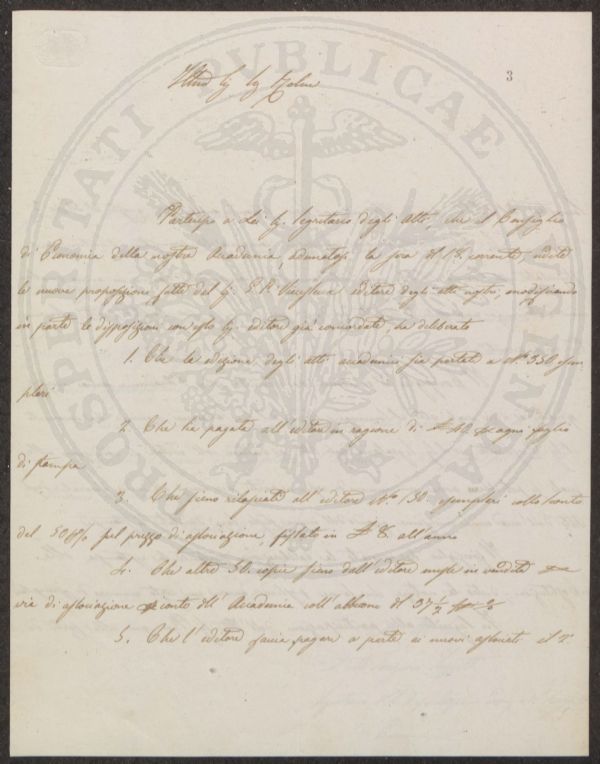 3
PROSPERITATI PVBLICAE AVGENDAE
Partecipo a Lei Sig. Segretario degli Atti, che il Consiglio
di Economia della nostra Accademia, adunatosi la sera del 18. corrente, udite
le nuove proposizioni fatte dal Sig. Vieusseux editore degli atti nostri, modificando
in parte le disposizioni con esso Sig. editore già concordate, ha deliberato
1. Che la edizione degli atti accademici sia portata a N.° 350 esem
plari
2. Che sia pagato all'editore in ragione di 40 ogni foglio
di stampa
3. Che sieno rilasciati all'editore N.° 150. esemplari collo sconto
del 50 p% sul prezzo di associazione, fissato in 8. all'anno
4. Che altre 50. copie sieno dall'editore messe in vendita
via di associazione conto dell'Accademia coll'abbuono del 37 1/2
5. Che l'editore faccia pagare a parte ai nuovi associati il 2°